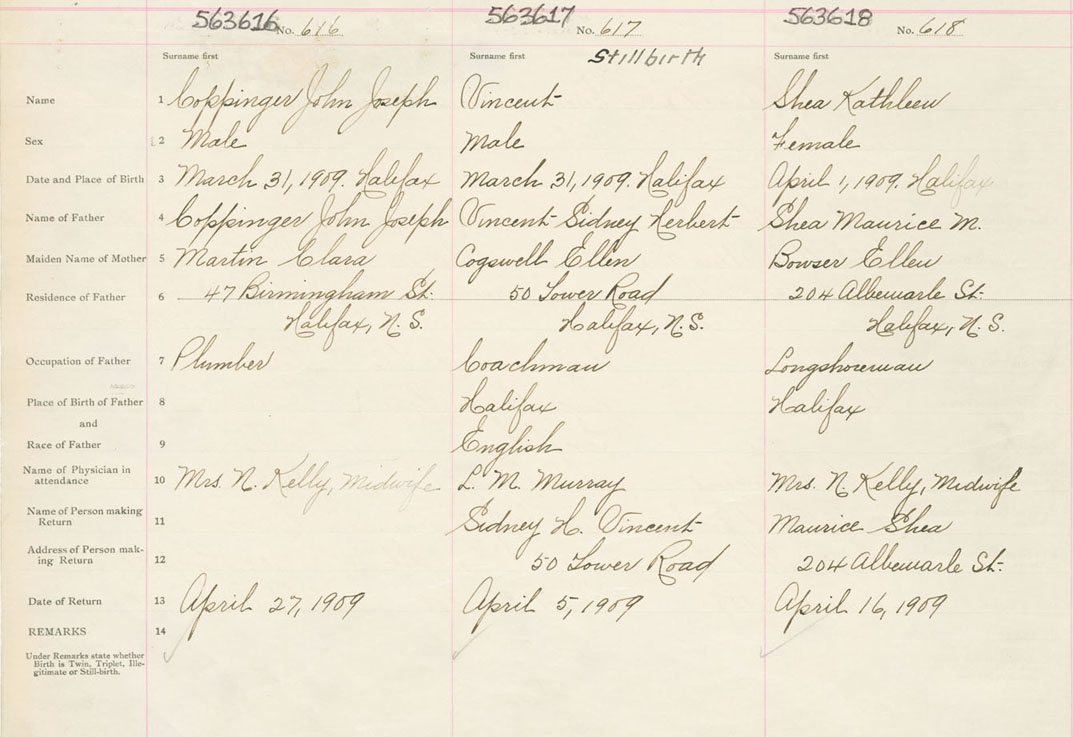 563616 No. 616 563617 No. 617 563618 No. 618
Surname first Surname first Stillbirth Surname first
Name 1 Coppinger John Joseph Vincent Shea Kathleen
Sex 2 Male Male Female
Date and Place of Birth 3 March 31, 1909. Halifax March 31, 1909. Halifax April 1, 1909. Halifax
Name of Father 4 Coppinger John Joseph Vincent Sidney Herbert Shea Maurice M.
Maiden Name of Mother 5 Martin Clara Cogswell Ellen Bowser Ellen
Residence of Father 6 47 Birmingham St. 50 Tower Road 204 Albemarle St.
Halifax, N.S. Halifax, N.S. Halifax, N.S.
Occupation of Father 7 Plumber Coachman Longshoreman
Place of Birth of Father 8 Halifax Halifax
and
Race of Father 9 English
Name of Physician in
attendance 10 Mrs. N. Kelly, Midwife L. M. Murray Mrs. N. Kelly, Midwife
Name of Person making
Return 11 Sidney H. Vincent Maurice Shea
Address of Person mak-
ing Return 12 50 Tower Road 204 Albemarle St.
Date of Return 13 April 27, 1909 April 5, 1909 April 16, 1909
REMARKS 14
Under Remarks state whether
Birth is Twin, Triplet, Ille-
gitimate or Still-birth.